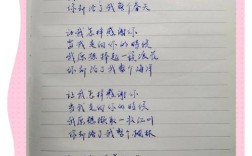 你却给了我整个春天
让我怎样感谢你
当我走向你的时候
我原想捧起一簇浪花
你却给了我整个海洋
让我怎样感谢你
当我走向你的时候
我原想撷取一枚红叶
你却给了我整个枫林